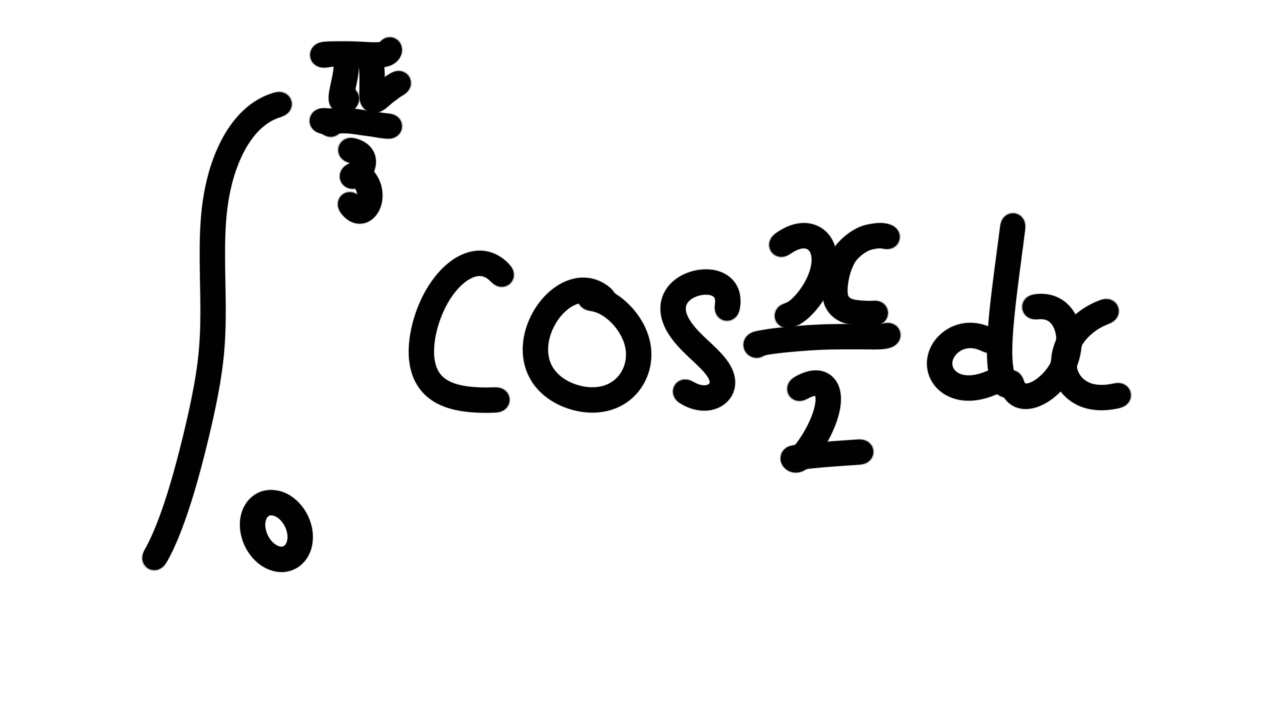 ∫₀^{π/3} cos x/2 dx